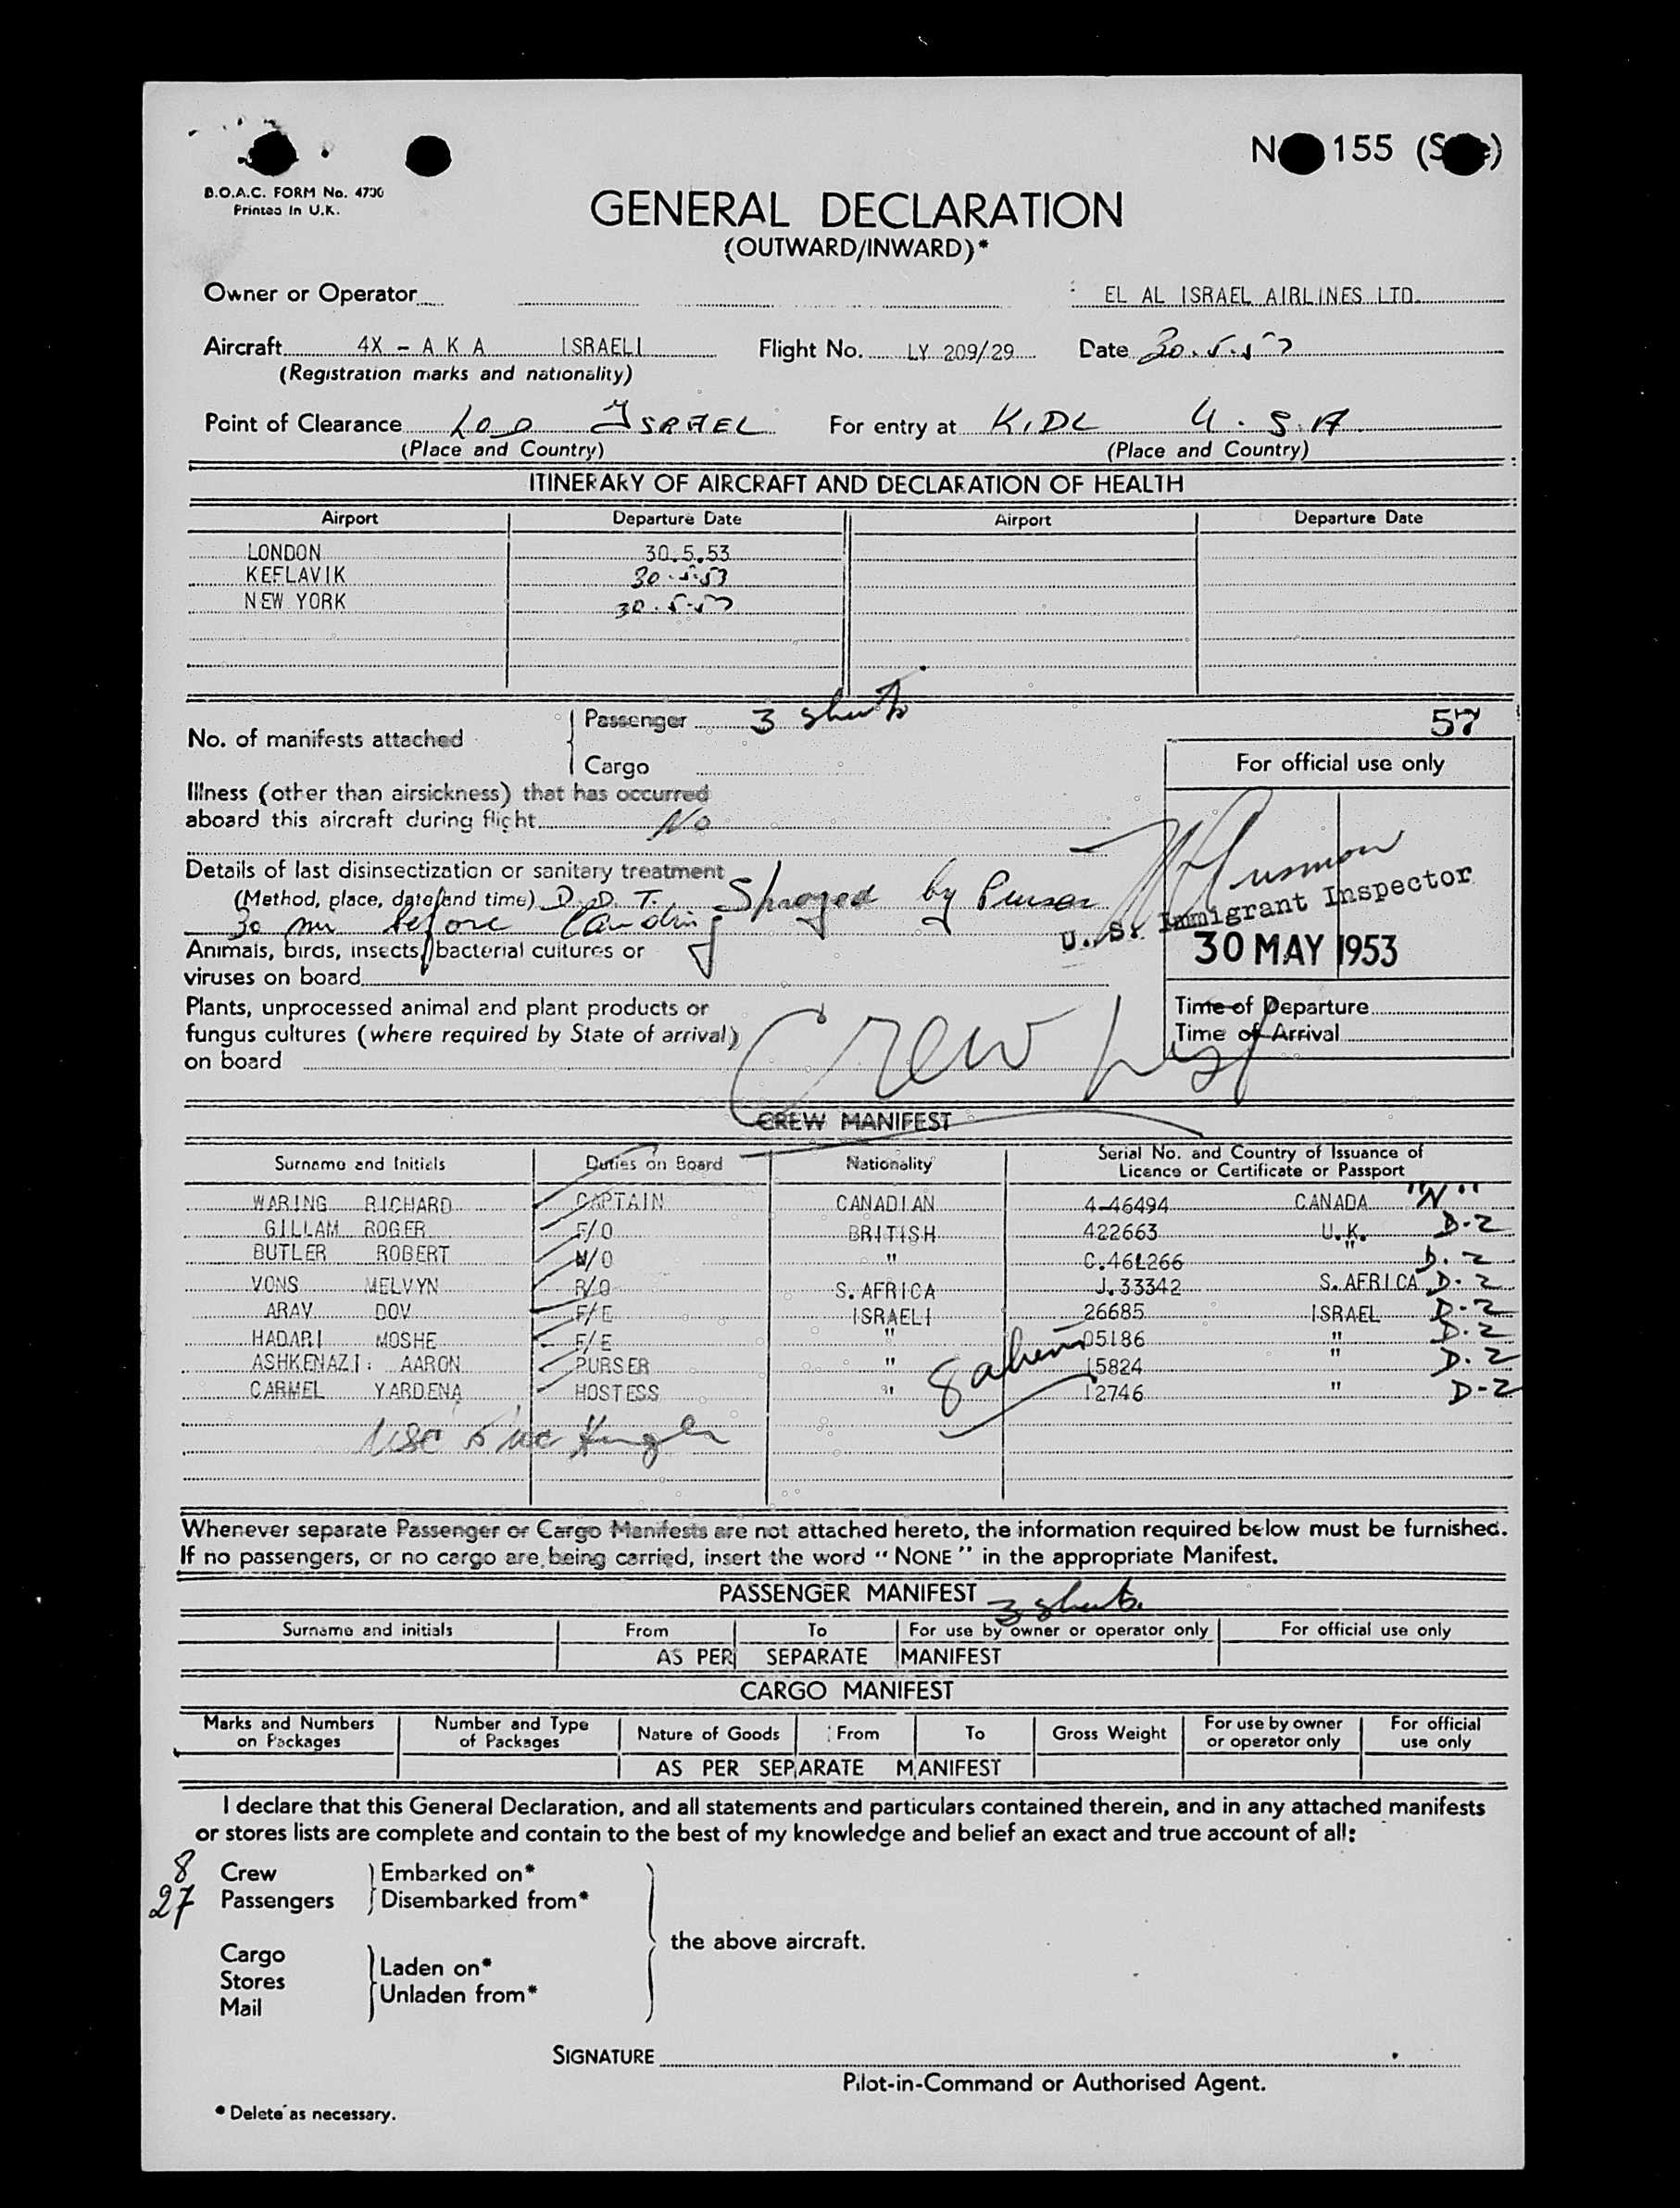 155
B.O.A.C. FORM No. 4700
Printed in U.K.
GENERAL DECLARATION
(OUTWARD/INWARD)*
Owner or Operator EL AL ISRAEL AIRLINES LTD.
Aircraft 4X - A K A ISRAELI Flight No. LY 209/29 Date 30.5.53
(Registration marks and nationality)
Point of Clearance LOD ISRAEL For entry at KIDL U.S.A
(Place and Country) (Place and Country)
ITINERARY OF AIRCRAFT AND DECLARATION OF HEALTH
Airport Departure Date Airport Departure Date
LONDON 30.5.53
KEFLAVIK 30.5.53
NEW YORK 30.5.53
No. of manifests attached
Passenger 3 sheets
Cargo
57
For official use only
Illness (other than airsickness) that has occurred
aboard this aircraft during flight No
Details of last disinsectization or sanitary treatment
(Method, place, date and time) D.D.T. Sprayed by Purser
30 min before landing
U. S. Immigrant Inspector
30 MAY 1953
Animals, birds, insects, bacterial cultures or
viruses on board
Plants, unprocessed animal and plant products or
fungus cultures (where required by State of arrival)
on board
Time of Departure
Time of Arrival
Crew List
CREW MANIFEST
Surname and Initials Duties on Board Nationality Serial No. and Country of Issuance of
Licence or Certificate or Passport
WARING RICHARD CAPTAIN CANADIAN 4-46494 CANADA "N"
GILLAM ROGER F/O BRITISH 422663 U.K. D-2
BUTLER ROBERT N/O " " D-2
VONS MELVYN R/O S.AFRICA J.33342 S.AFRICA D-2
ARAV DOV F/E ISRAELI 26685 ISRAEL D-2
HADARI MOSHE F/E " 05186 " D-2
ASHKENAZI: AARON PURSER " 15824 " D-2
CARMEL YARDENA HOSTESS " 12746 " D-2
8 aliens
Whenever separate Passenger or Cargo Manifests are not attached hereto, the information required below must be furnished.
If no passengers, or no cargo are being carried, insert the word "NONE" in the appropriate Manifest.
PASSENGER MANIFEST 3 sheets.
Surname and initials From To For use by owner or operator only For official use only
AS PER SEPARATE MANIFEST
CARGO MANIFEST
Marks and Numbers on Packages Number and Type of Packages Nature of Goods From To Gross Weight For use by owner or operator only For official use only
AS PER SEPARATE MANIFEST
I declare that this General Declaration, and all statements and particulars contained therein, and in any attached manifests
or stores lists are complete and contain to the best of my knowledge and belief an exact and true account of all:
8 Crew Embarked on*
27 Passengers Disembarked from*
the above aircraft.
Cargo
Stores
Mail
Laden on*
Unladen from*
SIGNATURE
Pilot-in-Command or Authorised Agent.
* Delete as necessary.